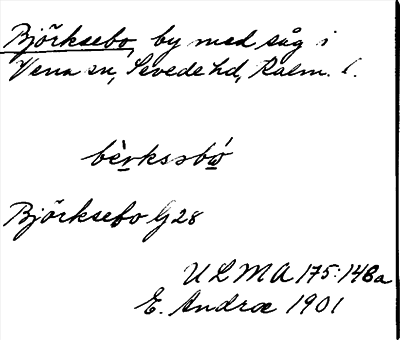 Björksebo by med såg i
Vena sn, Sevede hd, Kalm. l.
bèrkssbó
Björksebo G 28
ULMA 175:148a
E. Andræ 1901